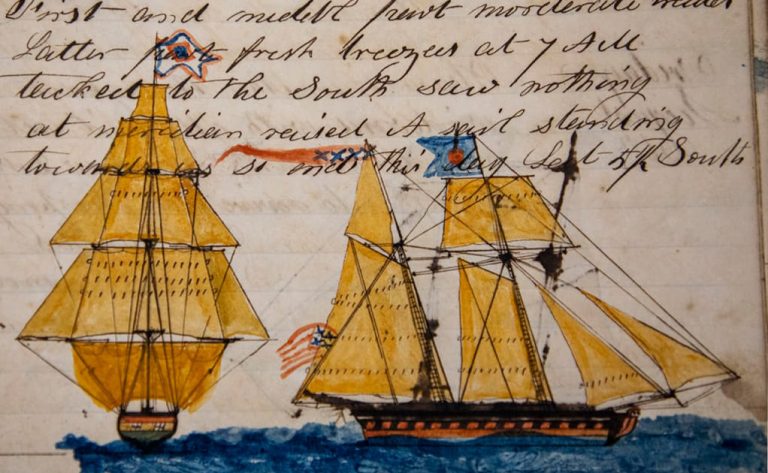 First and middle part morderate
Latter part fresh breezes at 7 AM
tacked to the South saw nothing
at meridian raised A sail standing
towards us so ends this day Lat 5 South